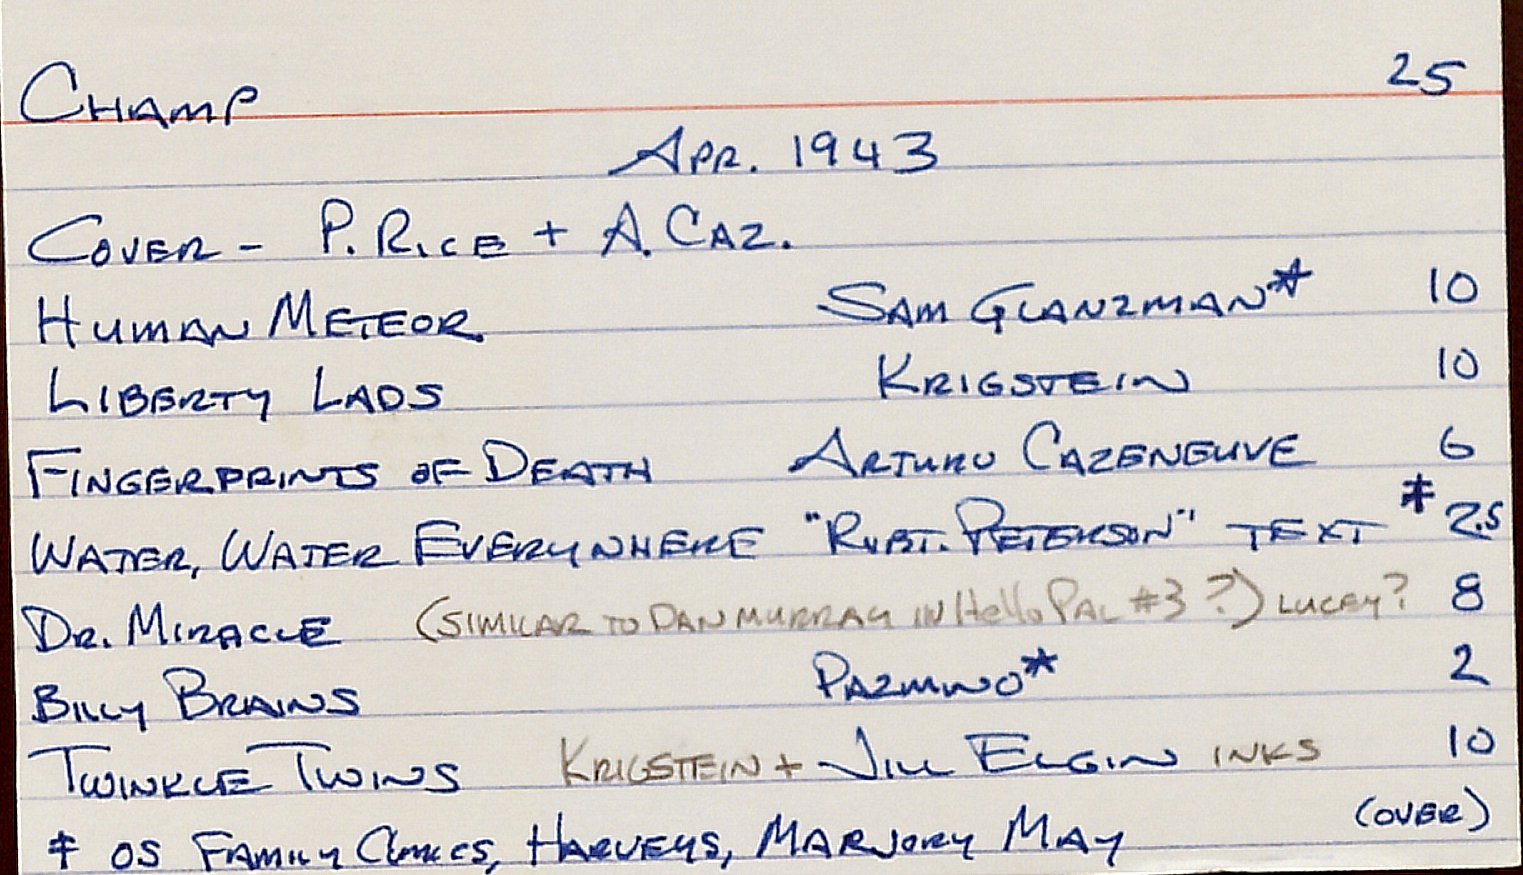 CHAMP 25
APR. 1943
COVER - P. RICE + A. CAZ.
HUMAN METEOR SAM GLANZMAN* 10
LIBERTY LADS KRIGSTEIN 10
FINGERPRINTS OF DEATH ARTURO CAZENEUVE 6
WATER, WATER EVERYWHERE "ROBT. PETERSON" TEXT ‡ 2.5
DR. MIRACLE (SIMILAR TO DAN MURRAY IN Hello PAL #3?) LUCEY? 8
BILLY BRAINS PAZMINO* 2
TWINKLE TWINS KRIGSTEIN + JILL ELGIN INKS 10
(OVER)
‡ OS FAMILY COMICS, HARVEYS, MARJORY MAY